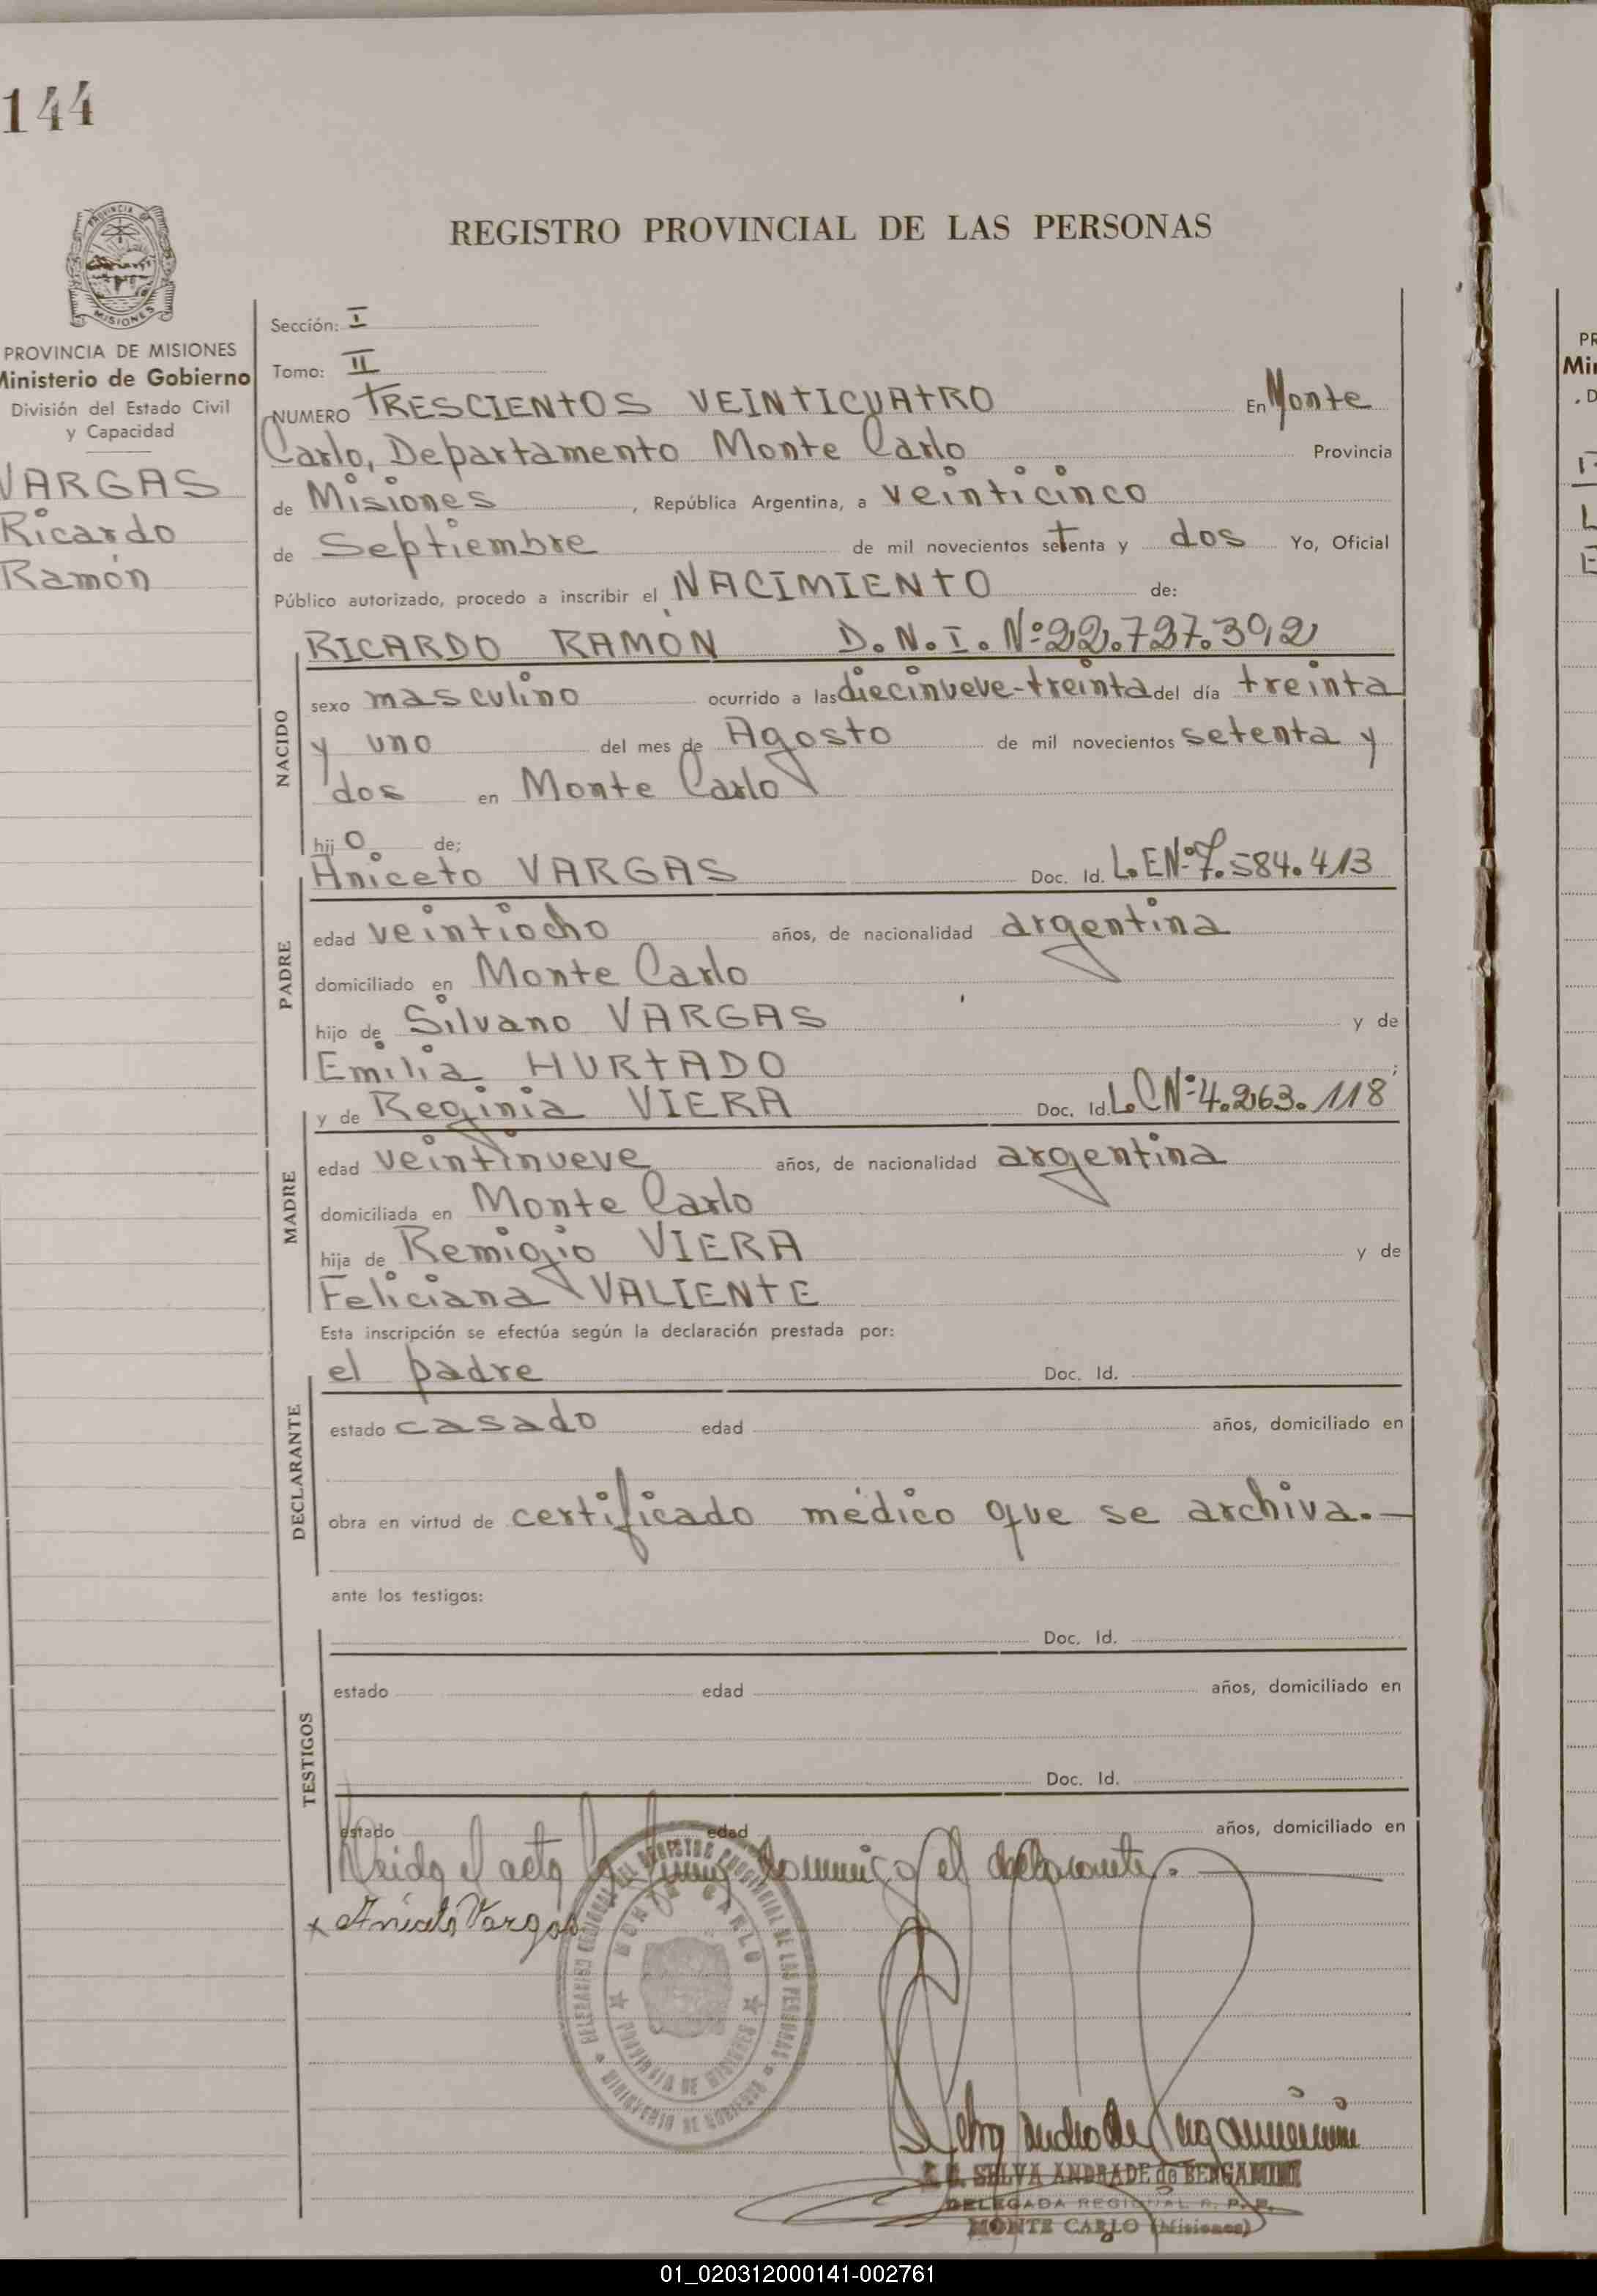 144
REGISTRO PROVINCIAL DE LAS PERSONAS
PROVINCIA
MISIONES
PROVINCIA DE MISIONES
Ministerio de Gobierno
División del Estado Civil
y Capacidad
VARGAS
Ricardo
Ramón
Sección: I
Tomo: II
NUMERO TRESCIENTOS VEINTICUATRO En Monte
Carlo, Departamento Monte Carlo Provincia
de Misiones, República Argentina, a veinticinco
de Septiembre de mil novecientos setenta y dos Yo, Oficial
Público autorizado, procedo a inscribir el NACIMIENTO de:
RICARDO RAMÓN D.N.I. Nº 22.727.392
NACIDO
sexo masculino ocurrido a las diecinueve-treinta del día treinta
y uno del mes de Agosto de mil novecientos setenta y
dos en Monte Carlo
hijo de:
PADRE
Aniceto VARGAS Doc. Id. L.E.Nº 7.584.413
edad veintiocho años, de nacionalidad argentina
domiciliado en Monte Carlo
hijo de Silvano VARGAS y de
Emilia HURTADO
MADRE
y de Reginia VIERA Doc. Id. L.C.Nº 4.263.118
edad veintinueve años, de nacionalidad argentina
domiciliada en Monte Carlo
hija de Remigio VIERA y de
Feliciana VALIENTE
Esta inscripción se efectúa según la declaración prestada por:
DECLARANTE
el padre Doc. Id.
estado casado edad años, domiciliado en
obra en virtud de certificado médico que se archiva.-
ante los testigos:
TESTIGOS
Doc. Id.
estado edad años, domiciliado en
Doc. Id.
estado edad años, domiciliado en
Leida el acta la firma conmigo el declarante.
x Aniceto Vargas
DELEGACION REGIONAL DEL REGISTRO PROVINCIAL DE LAS PERSONAS
MONTE CARLO
PROVINCIA DE MISIONES
MINISTERIO DE GOBIERNO
SELVA ANDRADE de BERGAMINI
DELEGADA REGIONAL R. P. P.
MONTE CARLO (Misiones)
01_020312000141-002761